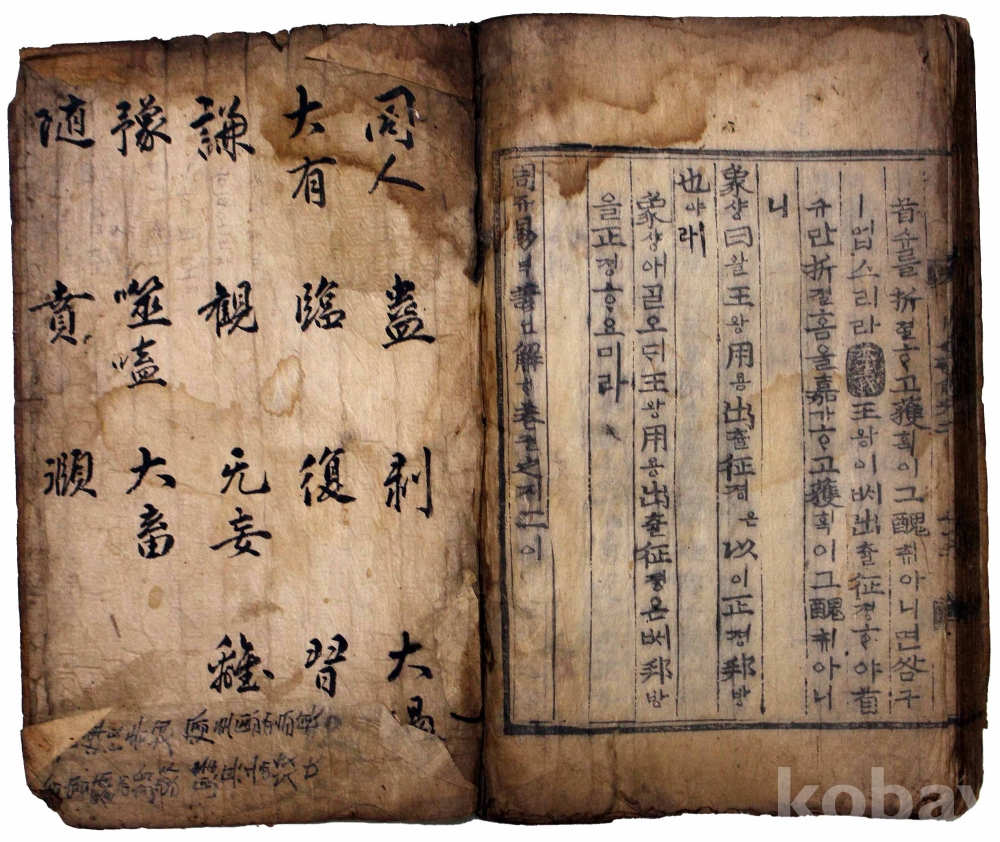 首슈를折졀ᄒᆞ고獲획이그醜취아니면咎구
ㅣ업스리라王왕이ᄡᅥ出츌征졍ᄒᆞ야首
슈만折졀홈을嘉가ᄒᆞ고獲획이그醜취아니
니
象샹曰왈王왕用용出츌征졍은以이正졍邦방
也야라
象샹아ᄀᆞᆯ오ᄃᆡ王왕用용出츌征졍은ᄡᅥ邦방
을正졍ᄒᆞ요미라
周쥬易역諺언解ᄒᆡ卷권之지二이
同人 大有 謙 豫 随
蠱 臨 観 噬嗑 賁
剥 復 无妄 大畜 頤
大過 習 離
kobay